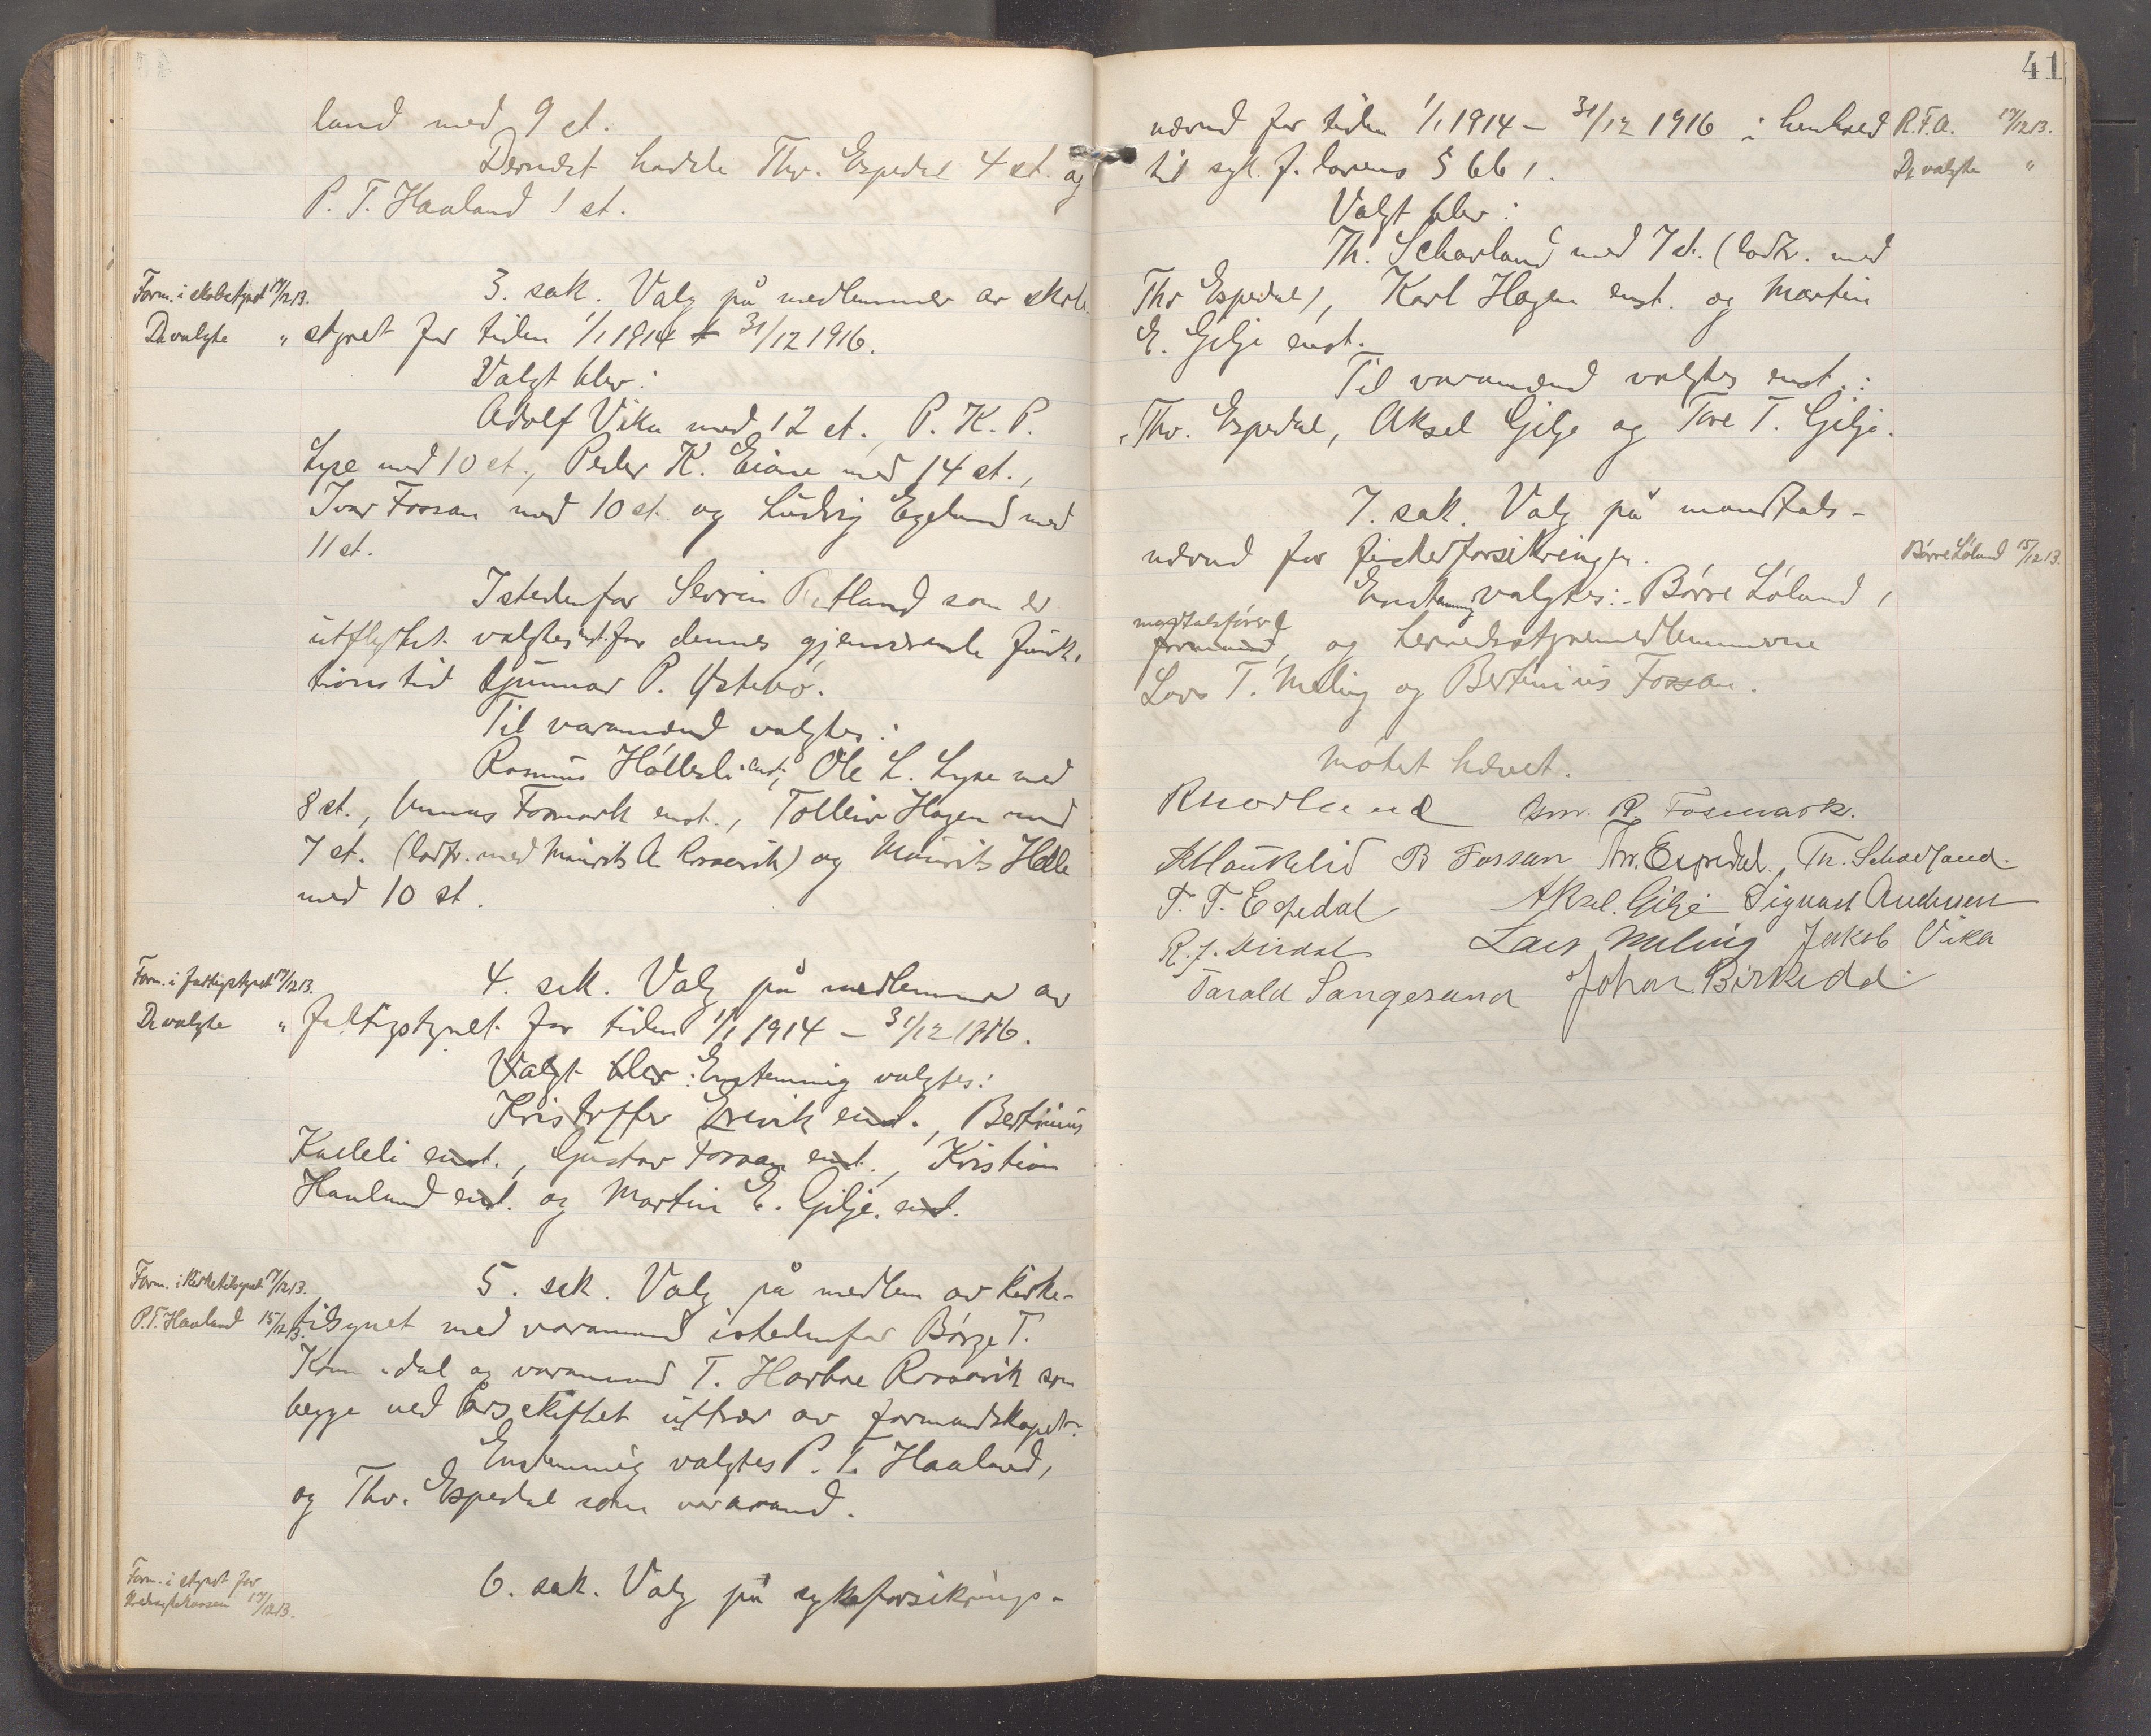 land med 9 st.
Dernæst hadde Thv. Espedal 4 st. og
P. T. Haaland 1 st.
Form. i skolestyret 17/12 13.
De valgte "
3. sak. Valg på medlemmer av skole-
styret for tiden 1/1 1914 - 31/12 1916.
Valgt blev:
Adolf Vika med 12 st., P. K. P.
Lyse med 10 st., Peder K. Eiane med 14 st.,
Ivar Fossan med 10 st. og Ludvig Egeland med
11 st.
Istedenfor Severin som er
utflyttet valgtes enst. for dennes gjenværende funk-
tionstid Gunnar P. Østebø.
Til varamænd valgtes:
Rasmus Høllesli enst., Ole L. Lyse med
8 st., Fosmark enst., Tolleiv Hagen med
7 st. (lodtr. med Maurits A. Rossavik) og Maurits Helle
med 10 st.
Form. i fattigstyret 17/12 13.
De valgte "
4. sak. Valg på medlemmer av
fattigstyret for tiden 1/1 1914 - 31/12 1916.
Valgt blev: Enstemmig valgtes:
Kristoffer Erevik enst., Bertinius
Kalleli enst., Gustav Fossan enst., Kristian
Haaland enst. og Martin E. Gilje. enst.
Form. i kirketilsynet 17/12 13.
P. T. Haaland 15/12 13.
5. sak. Valg på medlem av kirke-
tilsynet med varamand istedenfor Børge T.
dal og varamand T. Rossavik som
begge ved årsskiftet uttrær av formandskapet.
Enstemmig valgtes P. T. Haaland,
og Thv. Espedal som varamand.
Form. i styret for
17/12 13.
6. sak. Valg på sykeforsikrings-
41
nævnd for tiden 1/1 1914 - 31/12 1916 i henhold
til syk. f. lovens § 66, 1.
R.F.A. 17/12 13.
De valgte "
Valgt blev:
Th. Scharland med 7 st. (lodtr. med
Thv Espedal), Karl Hagen enst. og Martin
E. Gilje enst.
Til varamænd valgtes enst.:
Thv. Espedal, Aksel Gilje og Tore T. Gilje.
7. sak. Valg på mandtals-
nævnd for fiskerforsikringen.
Børre Løland 15/12 13.
Enstemmig valgtes: Børre Løland,
mandtalsfører
formand, og herredsstyremedlemmerne
Lars T. Meling og Bertinius Fossan.
Møtet hævet.
R Nordland Asm. R. Fosmark.
R Haukelid B Fossan Thv. Espedal. Th. Scharland.
T. T. Espedal Aksel. Gilje Sigvart Andersen
R. J. Dirdal Lars Meling Jakob Vika
Tarald Sangesand Johan Birkedal.